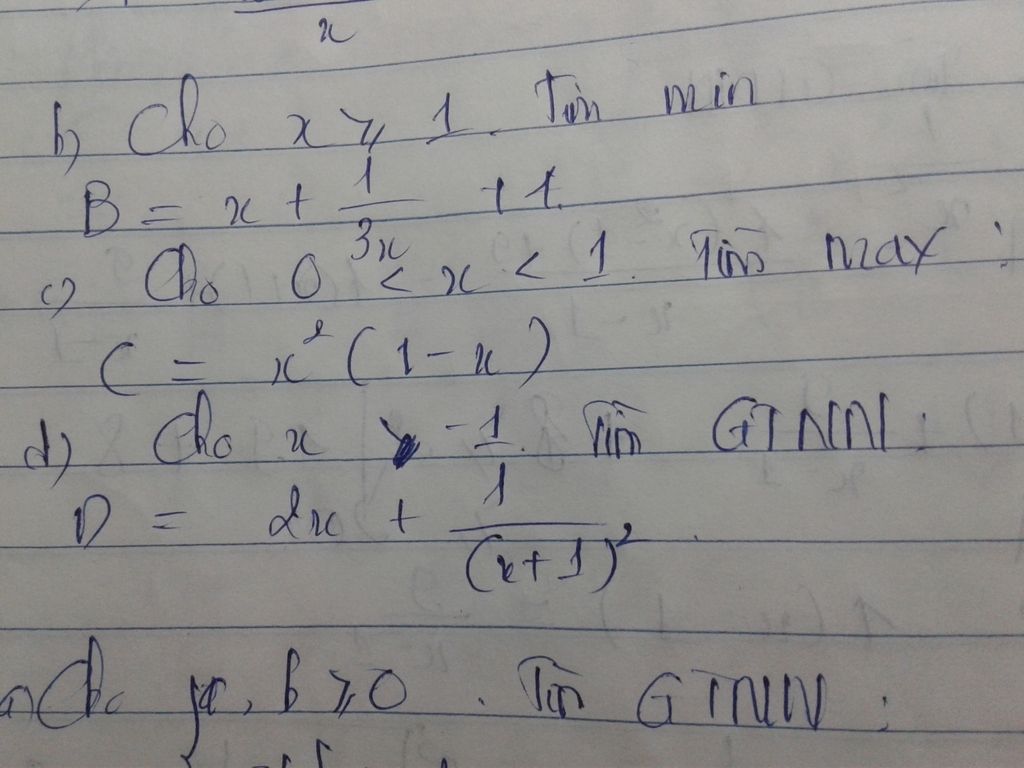 x
b) Cho x ≥ 1. Tìm min
B = x + 1/3x + 1.
c) Cho 0 < x < 1. Tìm max :
C = x²(1 - x)
d) Cho x > -1. Tìm GTNN :
D = 2x + 1/(x+1)².
a) Cho , b ≥ 0. Tìm GTNN :